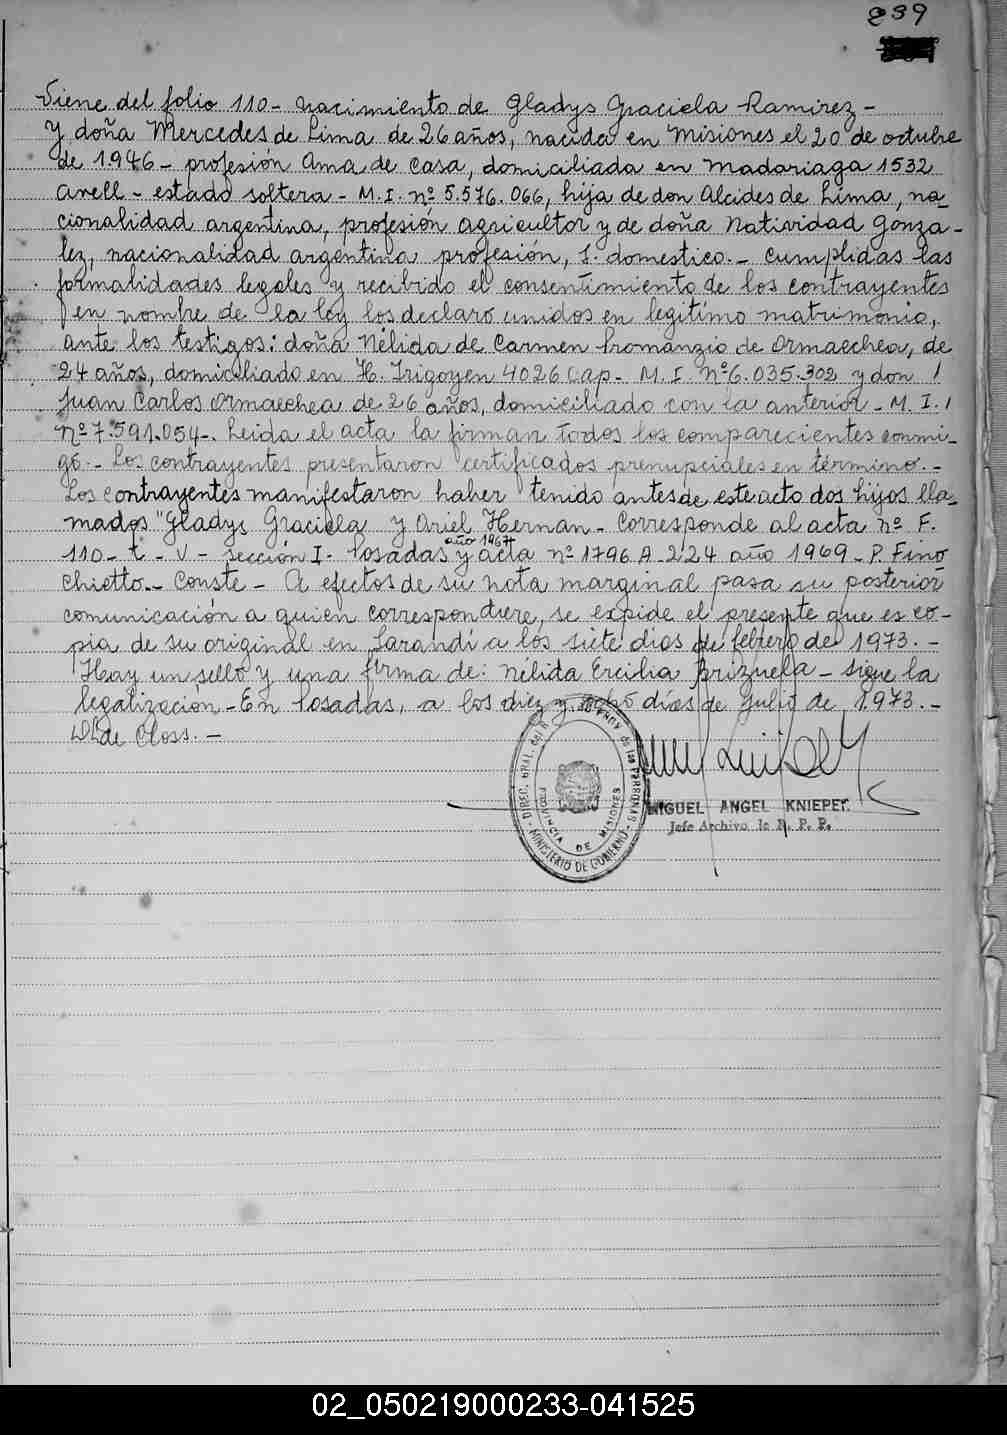 239
Viene del folio 110 - nacimiento de Gladys Graciela Ramirez -
y doña Mercedes de Lima de 26 años, nacida en Misiones el 20 de octubre
de 1.946 - profesión Ama de Casa, domiciliada en Madariaga 1532
Avell - estado soltera - M.I. nº 5.576.066, hija de don Alcides de Lima, na-
cionalidad argentina, profesión agricultor y de doña Natividad Gonza-
lez, nacionalidad argentina profesión, S. domestico. - Cumplidas las
formalidades legales y recibido el consentimiento de los contrayentes
en nombre de la ley los declaro unidos en legítimo matrimonio,
ante los testigos: doña Nélida de Carmen Promanzio de Ormaechea, de
24 años, domiciliado en H. Irigoyen 4026 Cap - M.I. Nº 6.035.302 y don
Juan Carlos Ormaechea de 26 años, domiciliado con la anterior - M.I.
Nº 7.591.054 -. Leida el acta la firman todos los comparecientes conmi-
go. - Los contrayentes presentaron certificados prenupciales en término. -
Los contrayentes manifestaron haber tenido antes de este acto dos hijos lla-
mados "Gladys Graciela y Ariel Hernan - Corresponde al acta nº F.
año 1967
110 - t - V - sección I. Posadas y acta nº 1796 A. 224 año 1969 - P. Fino
Chietto - Conste - A efectos de su nota marginal pasa su posterior
comunicación a quien correspondiere, se expide el presente que es co-
pia de su original en Sarandí a los siete dias de febrero de 1973. -
Hay un sello y una firma de: Nélida Ercilia Brizuela - sigue la
legalizacion - En Posadas, a los diez y ocho días de julio de 1.973. -
de Closs. -
DIREC. GRAL. del R. de las PERSONAS - MINISTERIO DE GOBIERNO -
PROVINCIA DE MISIONES
MIGUEL ANGEL KNIEPER
Jefe Archivo R. P. P.
02_050219000233-041525